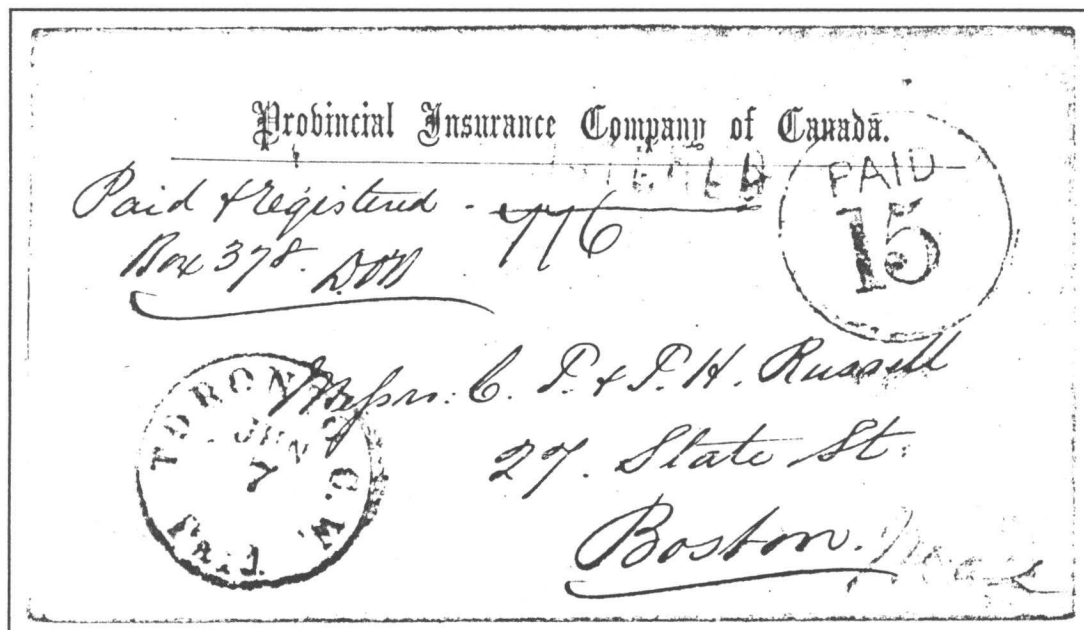 Provincial Insurance Company of Canada.
Paid & registered - 776
Box 378.
PAID
15
TORONTO C.W.
JUN
7
PAID
Messrs. C. P. & P. H. Russell
27. State St.
Boston. Mass